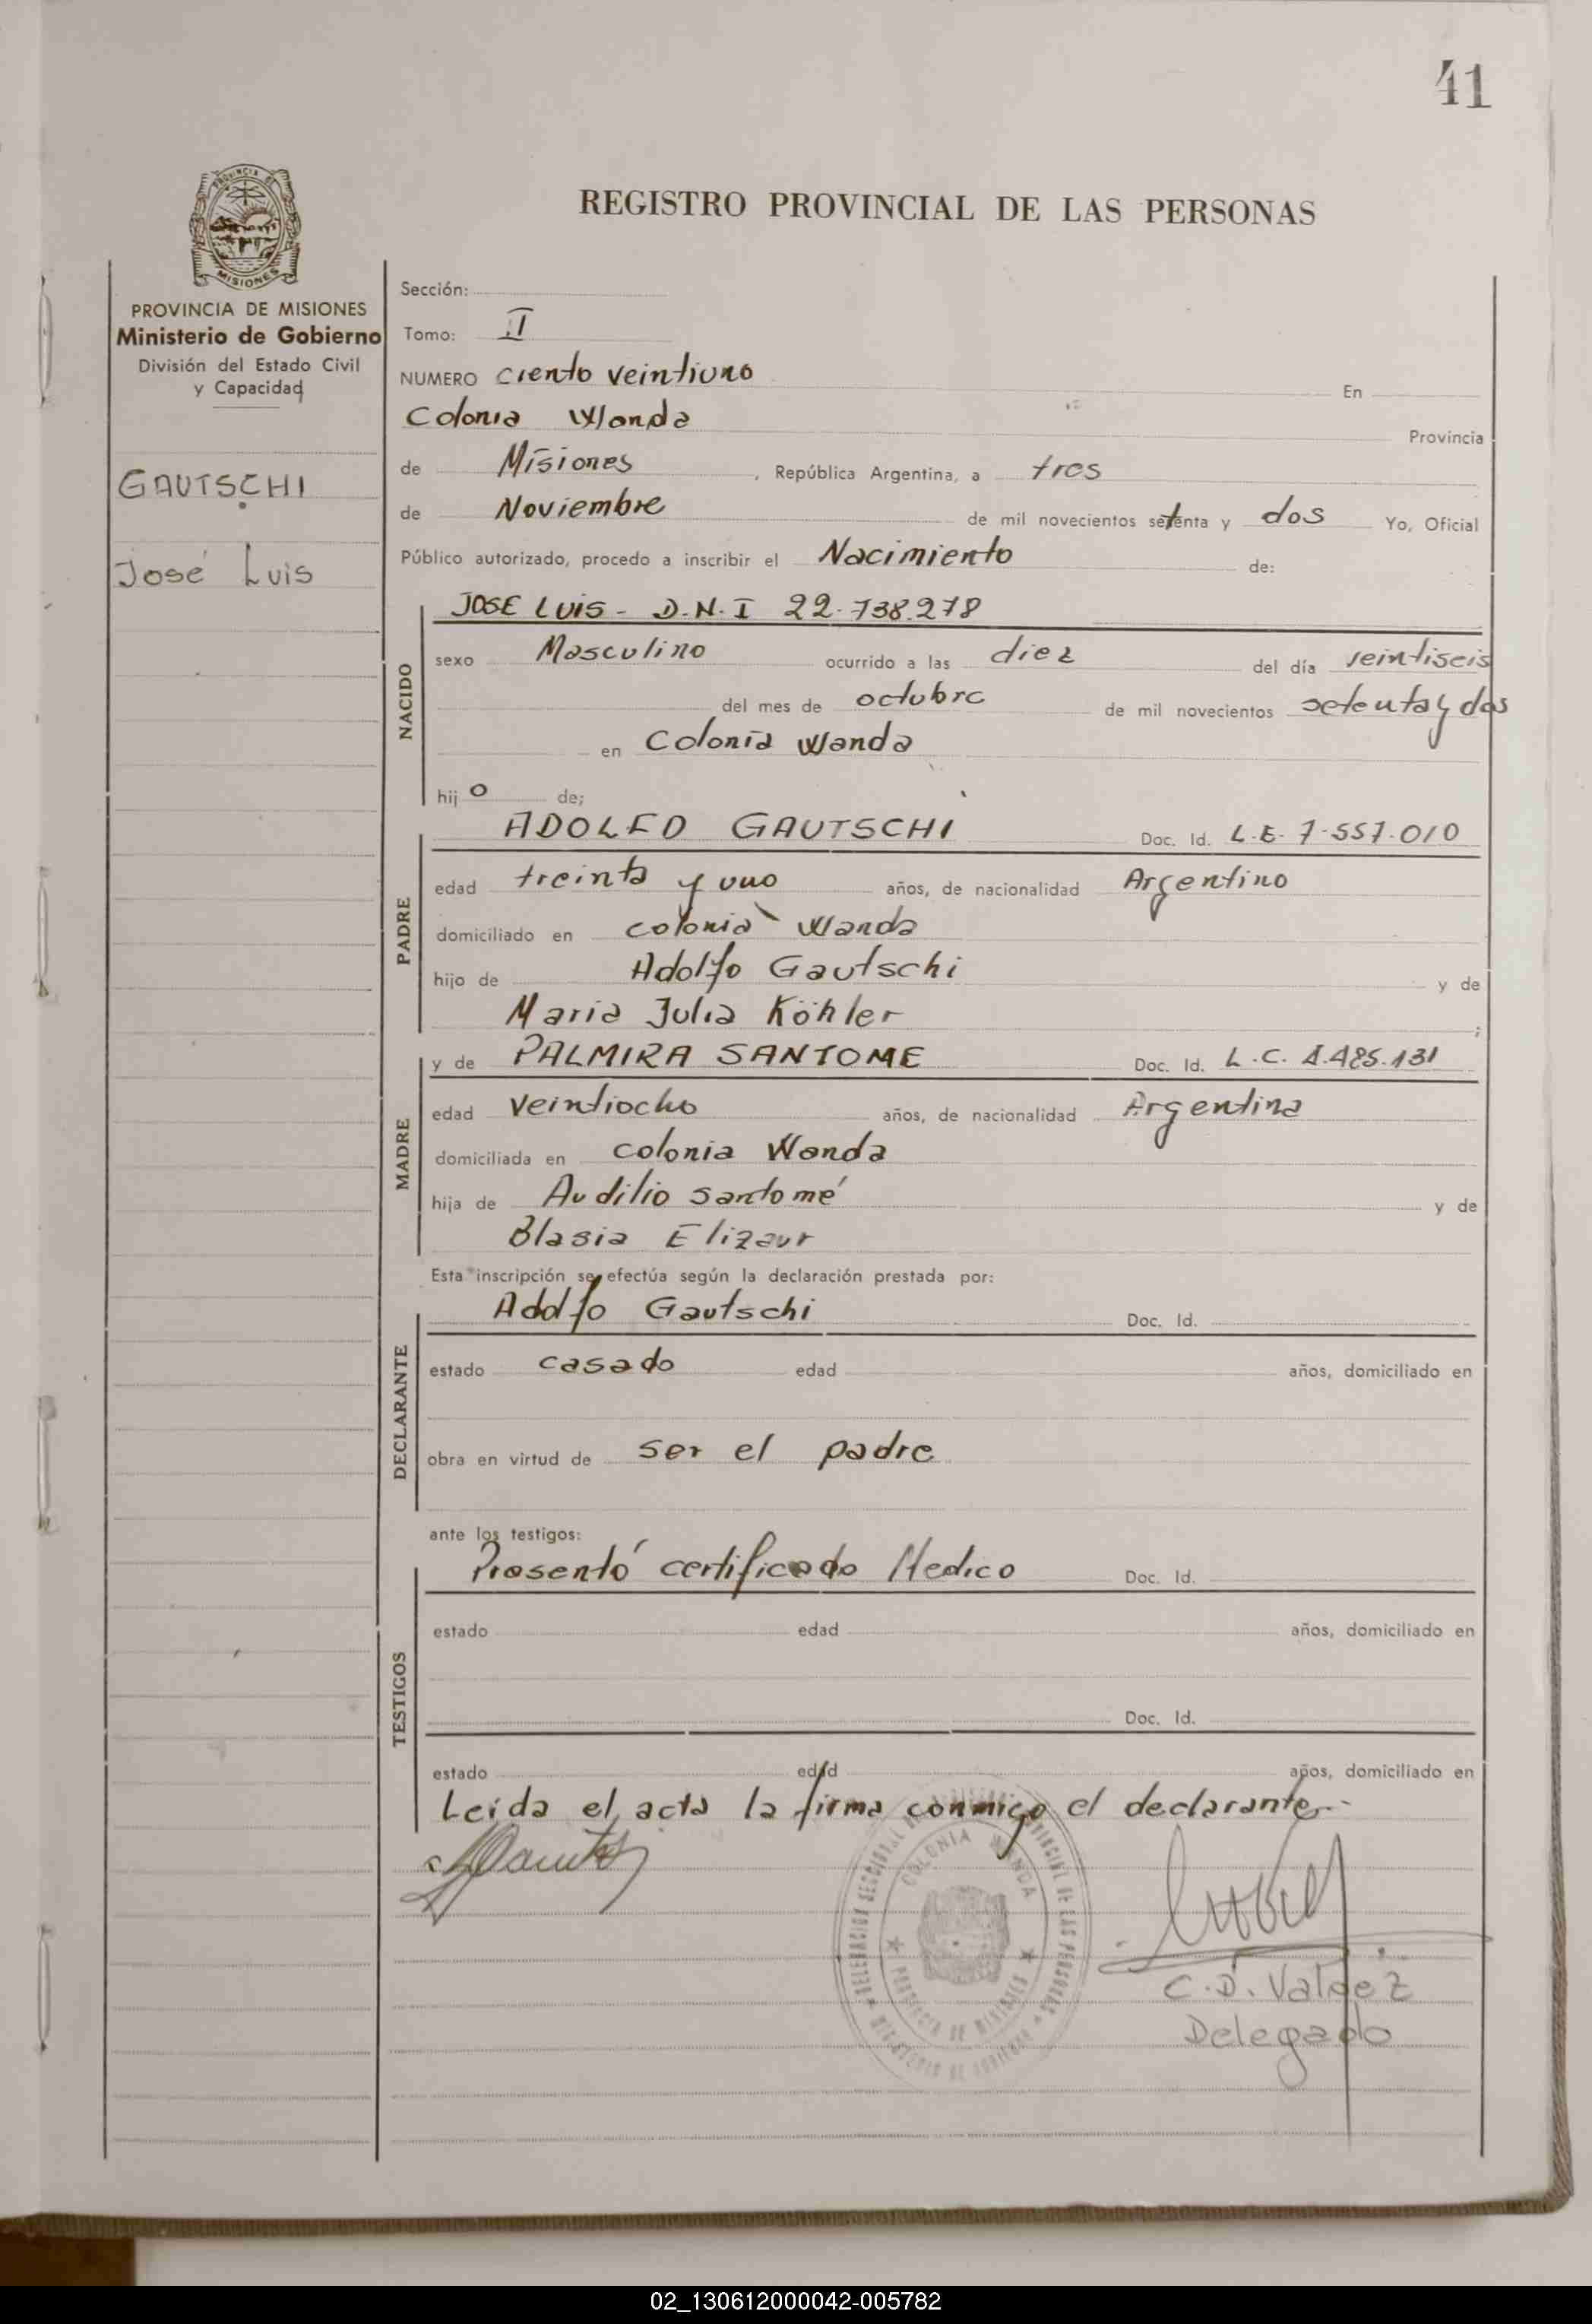 41
PROVINCIA DE
MISIONES
REGISTRO PROVINCIAL DE LAS PERSONAS
PROVINCIA DE MISIONES
Ministerio de Gobierno
División del Estado Civil
y Capacidad
GAUTSCHI
José Luis
Sección:
Tomo: II
NUMERO ciento veintiuno En
Colonia Wanda Provincia
de Misiones , República Argentina, a tres
de Noviembre de mil novecientos setenta y dos Yo, Oficial
Público autorizado, procedo a inscribir el Nacimiento de:
NACIDO
JOSE LUIS - D.N.I 22.738.278
sexo Masculino ocurrido a las diez del día veintiseis
del mes de octubre de mil novecientos setenta y dos
en Colonia Wanda
hij o de;
PADRE
ADOLFO GAUTSCHI Doc. Id. L.E. 7.557.010
edad treinta y uno años, de nacionalidad Argentino
domiciliado en colonia Wanda
hijo de Adolfo Gautschi y de
Maria Julia Köhler ;
MADRE
y de PALMIRA SANTOME Doc. Id. L.C. 4.485.131
edad veintiocho años, de nacionalidad Argentina
domiciliada en colonia Wanda
hija de Audilio Santomé y de
Blasia Elizaur
Esta inscripción se efectúa según la declaración prestada por:
DECLARANTE
Adolfo Gautschi Doc. Id.
estado casado edad años, domiciliado en
obra en virtud de ser el padre
ante los testigos:
TESTIGOS
Presentó certificado Medico Doc. Id.
estado edad años, domiciliado en
Doc. Id.
estado edad años, domiciliado en
Leida el acta la firma conmigo el declarante.-
COLONIA WANDA
PROVINCIA DE MISIONES
C.D. Valdez
Delegado
02_130612000042-005782